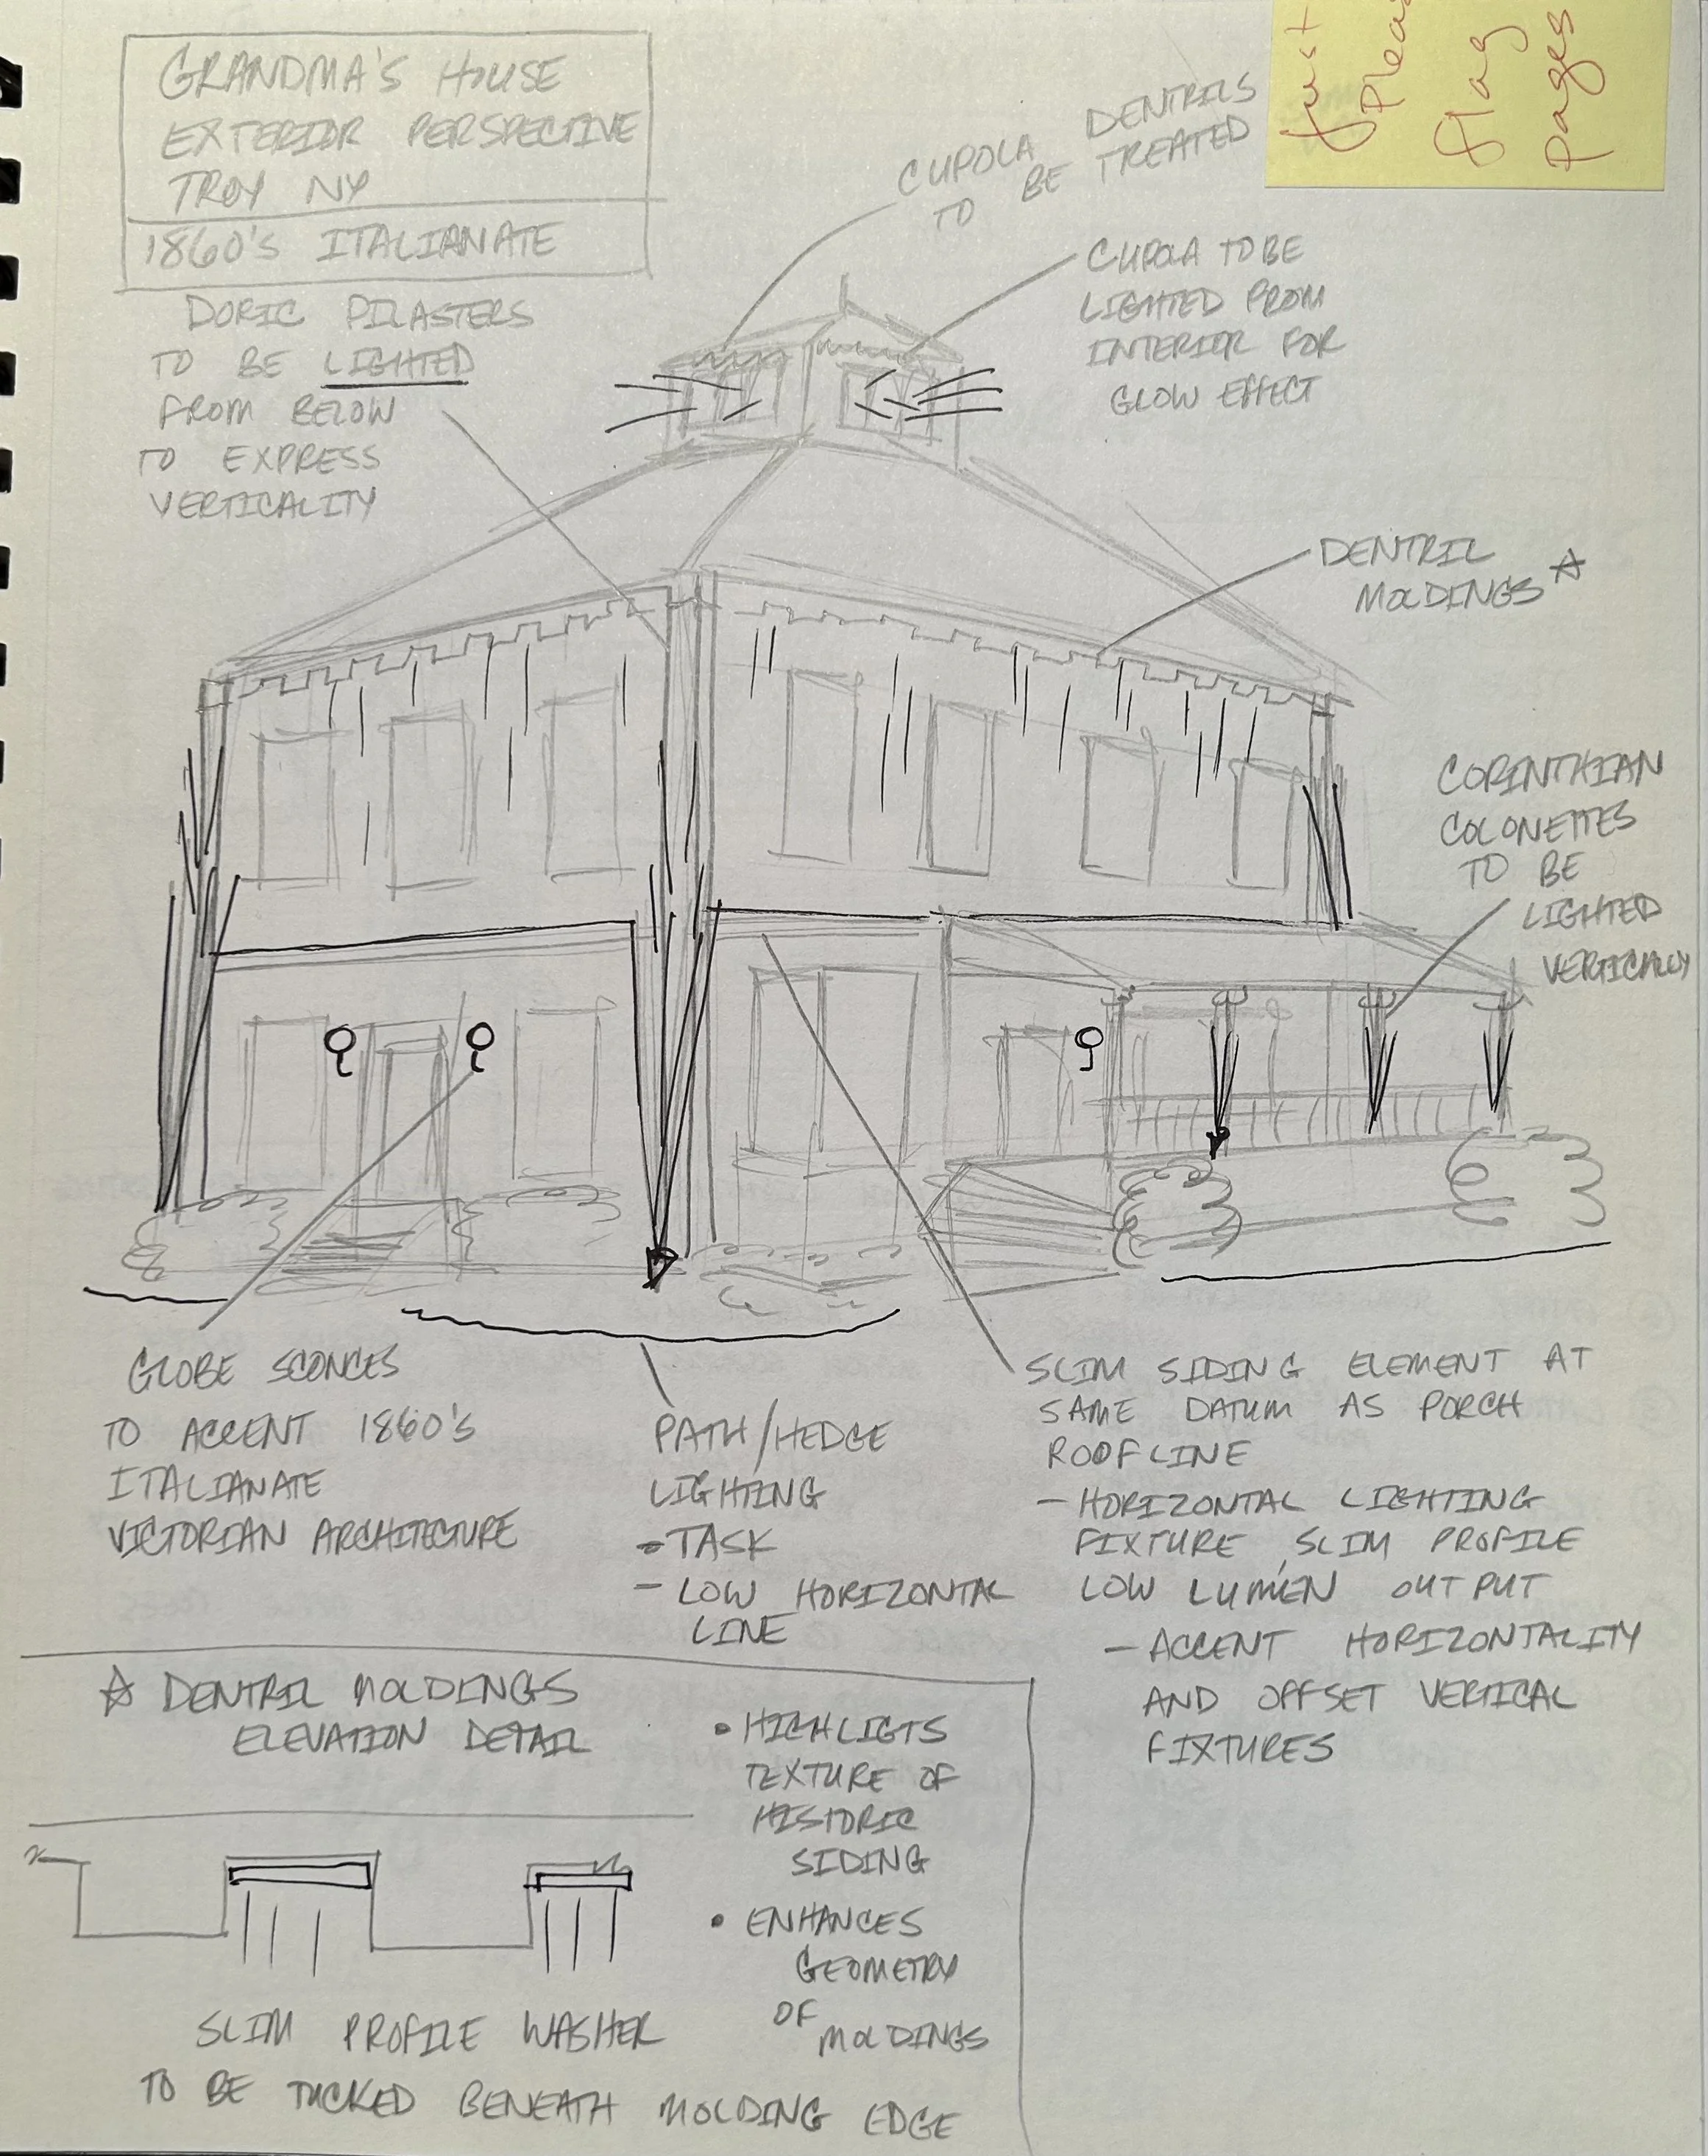 GRANDMA'S HOUSE
EXTERIOR PERSPECTIVE
TROY NY
1860'S ITALIANATE
Just
Pleas
flag
pages
CUPOLA DENTRILS
TO BE TREATED
CUPOLA TO BE
LIGHTED FROM
INTERIOR FOR
GLOW EFFECT
DORIC PILASTERS
TO BE LIGHTED
FROM BELOW
TO EXPRESS
VERTICALITY
DENTRIL
MOLDINGS ☆
CORINTHIAN
COLONETTES
TO BE
LIGHTED
VERTICALLY
GLOBE SCONCES
TO ACCENT 1860'S
ITALIANATE
VICTORIAN ARCHITECTURE
PATH/HEDGE
LIGHTING
- TASK
- LOW HORIZONTAL
LINE
SLIM SIDING ELEMENT AT
SAME DATUM AS PORCH
ROOFLINE
- HORIZONTAL LIGHTING
FIXTURE, SLIM PROFILE
LOW LUMEN OUTPUT
- ACCENT HORIZONTALITY
AND OFFSET VERTICAL
FIXTURES
☆ DENTRIL MOLDINGS
ELEVATION DETAIL
• HIGHLIGTS
TEXTURE OF
HISTORIC
SIDING
• ENHANCES
GEOMETRY
OF
MOLDINGS
SLIM PROFILE WASHER
TO BE TUCKED BENEATH MOLDING EDGE